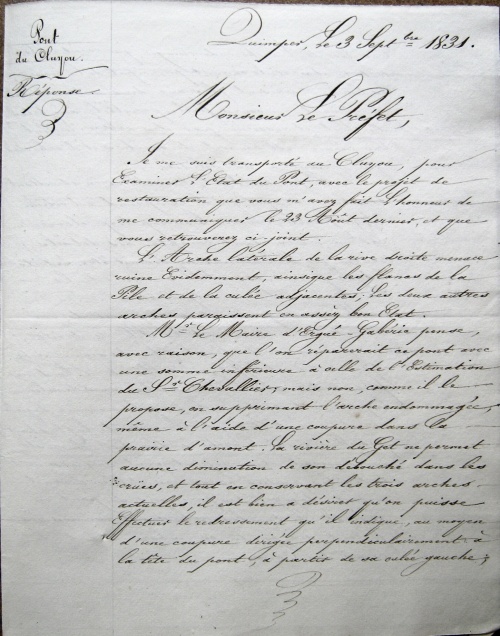 Pont
du Cluyou.
Réponse
Quimper, Le 3 Sept.bre 1831.
Monsieur Le Préfet,
Je me suis transporté au Cluyou, pour
Examiner l'Etat du Pont, avec le projet de
restauration que vous m'avez fait l'honneur de
me communiquer le 23 Août dernier, et que
vous retrouverez ci joint.
L'Arche latérale de la rive droite menace
ruine Evidemment, ainsi que les flancs de la
Pile et de la culée adjacentes; Les deux autres
arches paraissent en assez bon Etat.
Mr. Le Maire d'Ergué-Gabéric pense,
avec raison, que l'on réparerait ce pont avec
une somme inférieure à celle de l'Estimation
du Sr. Chevallier; mais non, comme il le
propose, en supprimant l'arche endommagée,
même à l'aide d'une coupure dans la
prairie d'amont. La rivière du Jet ne permet
aucune diminution de son débouché dans les
crües, et tout en conservant les trois arches
actuelles, il est bien à désirer qu'on puisse
Effectuer le redressement qu'il indique, au moyen
d'une coupure dirigée perpendiculairement à
la tête du pont, à partir de sa culée gauche;